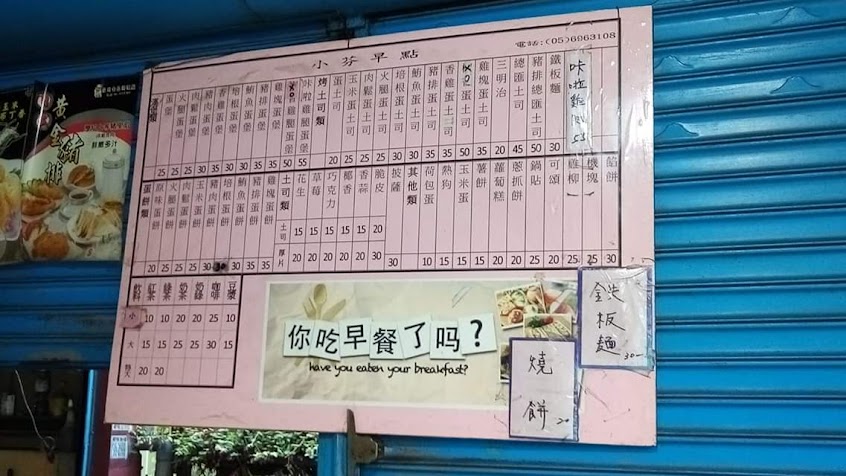 小芬早點
電話:(05)6963108
漢堡類
蛋堡 25
火腿蛋堡 25
肉鬆蛋堡 25
豬肉蛋堡 35
香雞蛋堡
培根蛋堡
鮪魚蛋堡
豬排蛋堡
雞塊蛋堡
咔啦雞腿蛋堡 55
烤土司類
蛋土司 20
玉米蛋土司 25
肉鬆蛋土司 25
火腿蛋土司 25
培根蛋土司 30
鮪魚蛋土司 30
豬排蛋土司 35
香雞蛋土司 35
雞塊蛋土司 35
三明治 20
總匯土司 45
豬排總匯土司 50
鐵板麵 30
咔啦雞
蛋餅類
原味蛋餅 20
火腿蛋餅 25
肉鬆蛋餅 25
玉米蛋餅 25
豬肉蛋餅 30
培根蛋餅
鮪魚蛋餅 30
豬排蛋餅 35
雞塊蛋餅 35
土司類 土司 厚片
花生 15 20
草莓 15 20
巧克力 15 20
椰香 15 20
香蒜 15 20
脆皮 20 30
披薩 30
其他類
荷包蛋 10
熱狗 15
玉米蛋 15
薯餅 15
蘿蔔糕 20
蔥抓餅 20
鍋貼 25
可頌 20
雞柳 25
雞塊 25
餡餅 30
飲料 紅茶 綠茶 奶茶 奶綠 咖啡 豆漿
小 10 10 20 20 25 10
大 15 15 25 25 30 15
特大 20 20
你吃早餐了吗?
have you eaten your breakfast?
燒餅 20
鉄板麵 30
黃金豬排